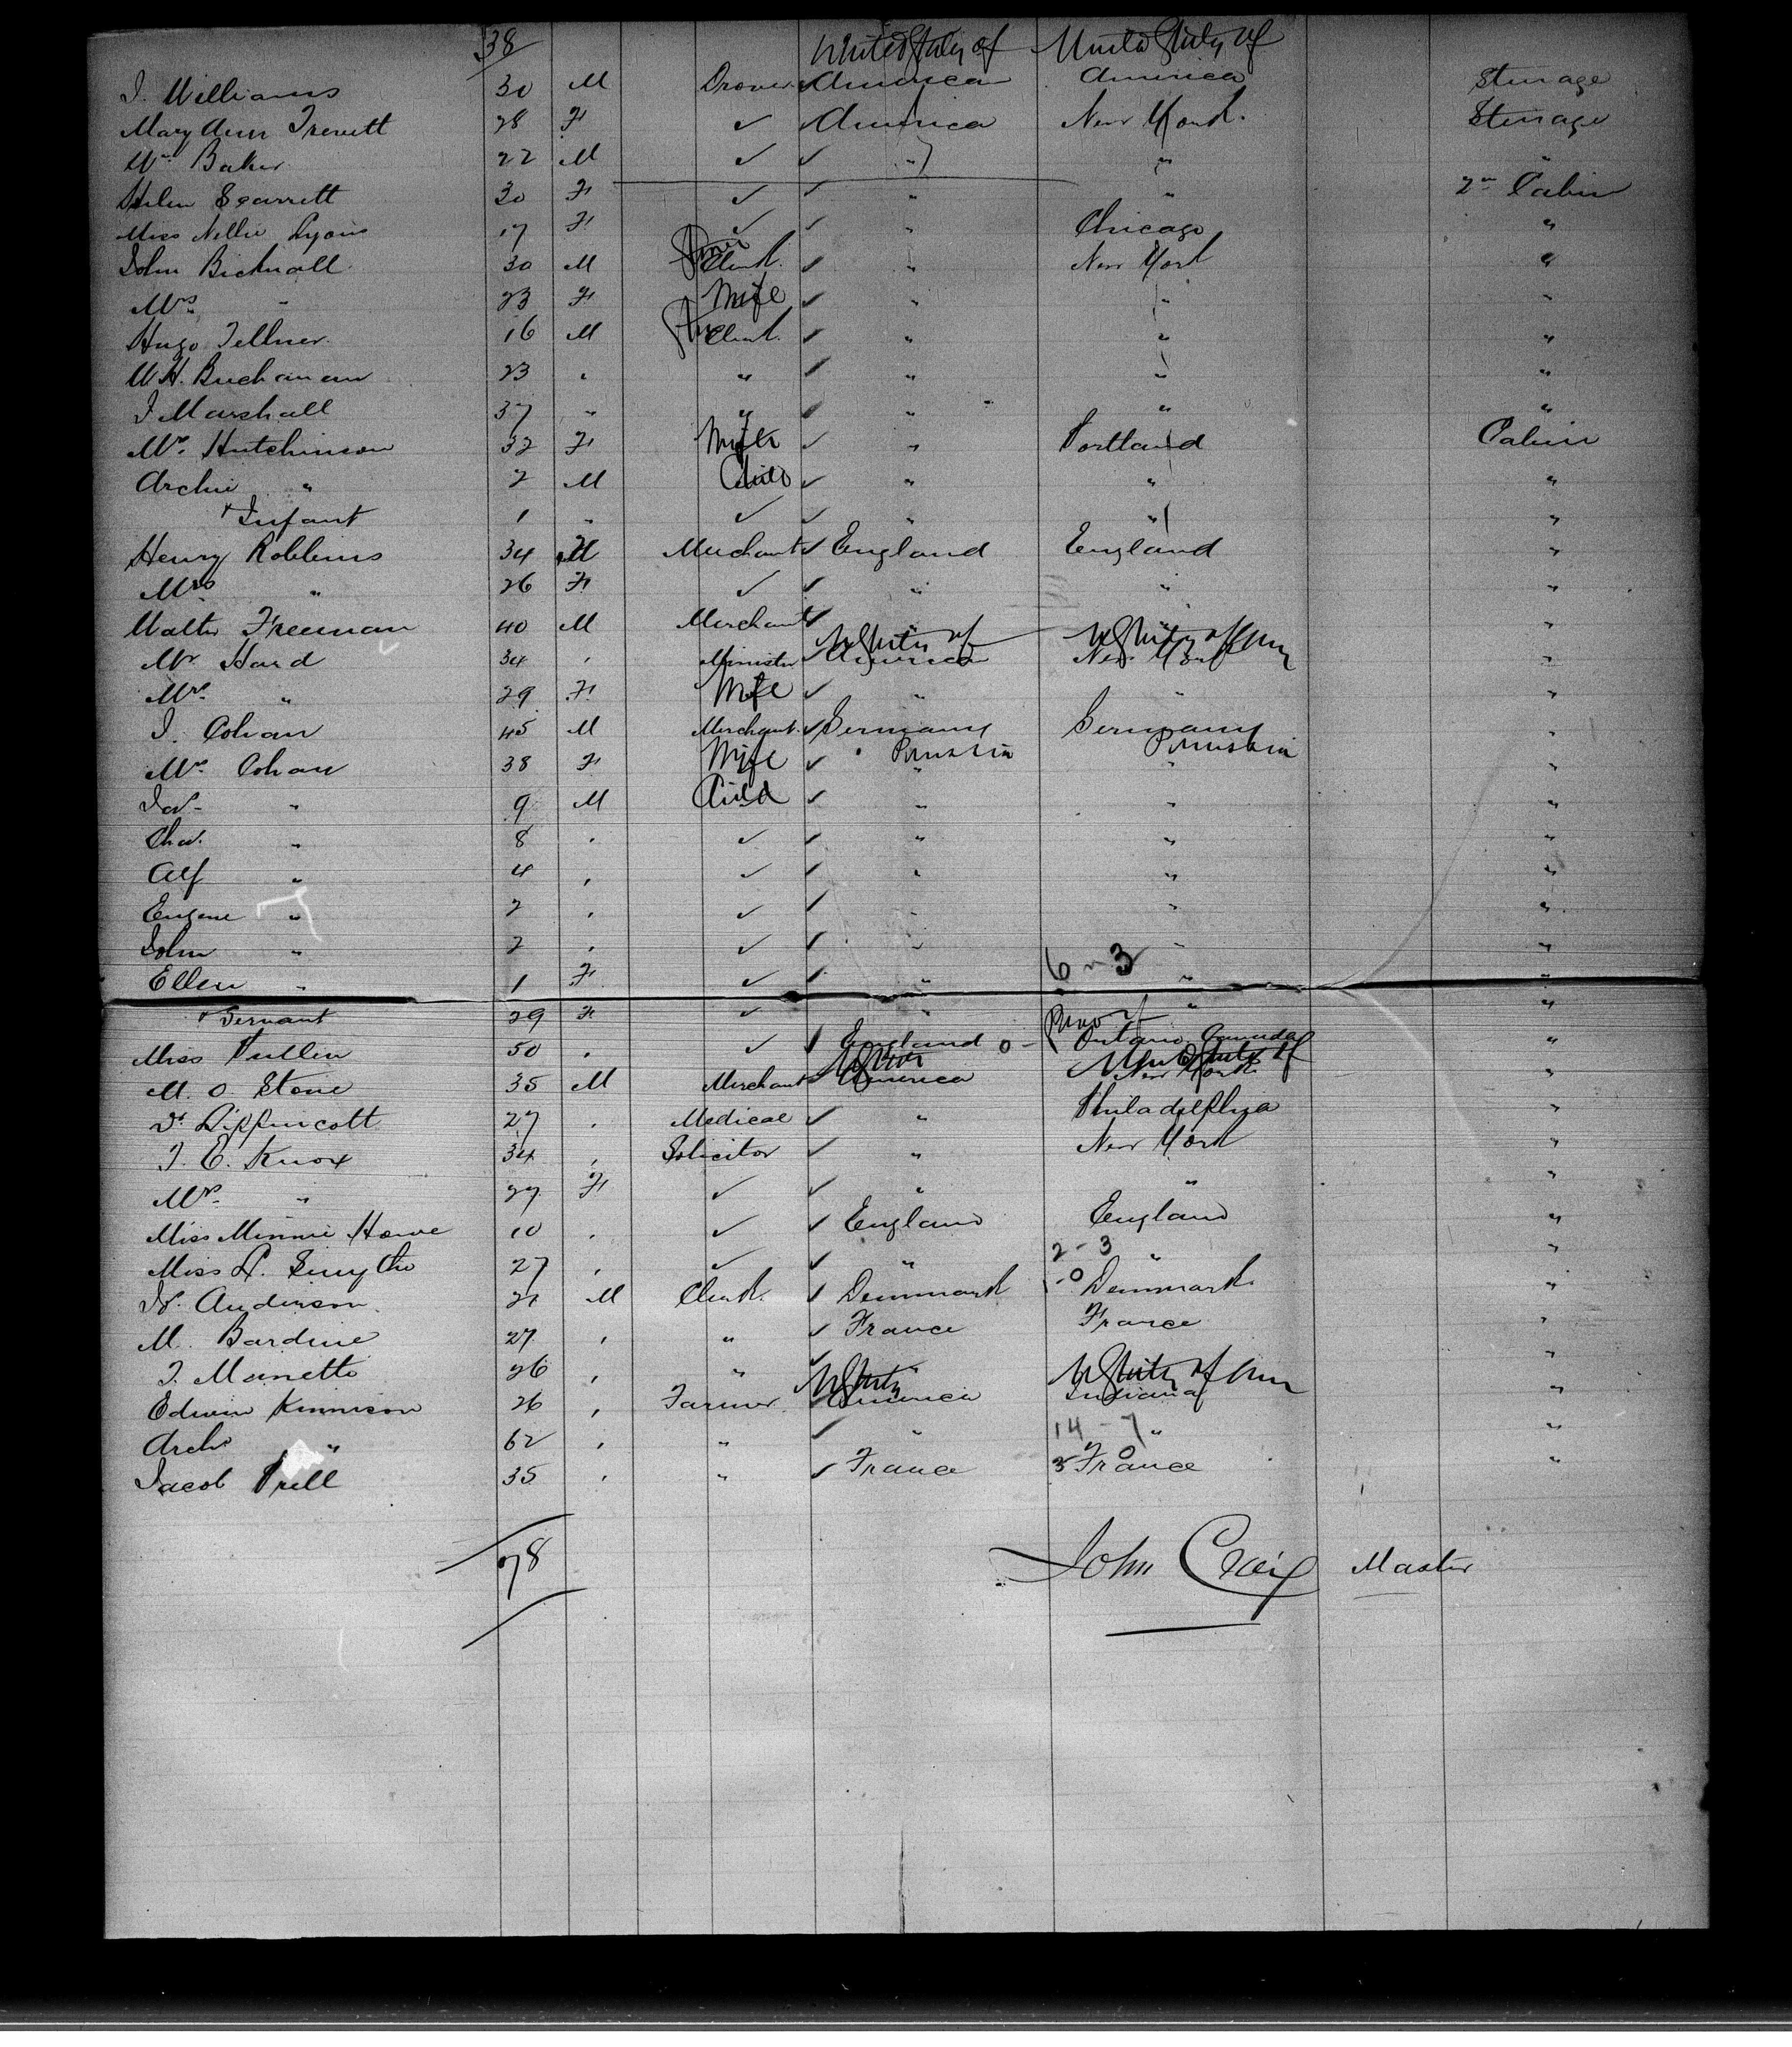 38 United States of United States of
J. Williams 30 M Drover ✓ America America Steerage
Mary Ann Trevett 28 F ✓ ✓ America New York. Steerage
Wm Baker 22 M ✓ ✓ " " "
Helen Scarrett 30 F ✓ ✓ " " 2nd Cabin
Miss Nellie Lyons 17 F ✓ ✓ " Chicago "
John Bicknall 30 M Clerk. ✓ " New York "
Mrs " 23 F Wife ✓ " " "
Hugo Tellner 16 M Clerk. ✓ " " "
W.H. Buchanan 23 " " ✓ " " "
J Marshall 37 " " ✓ " " "
Mrs Hutchinson 32 F Wife ✓ " Portland Cabin
Archie " 2 M Child ✓ " " "
" Infant 1 " ✓ ✓ " " "
Henry Robbins 34 M Merchant ✓ England England "
Mrs " 26 F ✓ ✓ " " "
Walter Freeman 40 M Merchant ✓ " " "
U States of U States of Am
Mr. Hard 34 " Minister ✓ America New York "
Mrs. " 29 F Wife ✓ " " "
J. Cohan 45 M Merchant. ✓ Germany Germany "
Prussia Prussia
Mrs. Cohan 38 F Wife ✓ " " "
Jas. " 9 M Child ✓ " " "
Chas. " 8 " ✓ ✓ " " "
Alf " 4 " ✓ ✓ " " "
Eugene " 2 " ✓ ✓ " " "
John " 2 " ✓ ✓ " " "
6 - 3
Ellen " 1 F ✓ ✓ " " "
" Servant 29 F ✓ " " "
Miss Pullin 50 " ✓ ✓ England 0 - Ontario, Canada "
United States of
M. O. Stone 35 M Merchant ✓ America New York "
Dr. Lippincott 27 " Medical ✓ " Philadelphia "
J. E. Knox 34 " Solicitor ✓ " New York "
Mrs. " 27 F ✓ ✓ " " "
Miss Minnie Howe 10 " ✓ ✓ England England "
2 - 3
Miss L. Smythe 27 " ✓ ✓ " " "
N. Anderson 21 M Clerk. ✓ Denmark - 0 Denmark "
M. Bardine 27 " " ✓ France France "
J. Manetto 26 " " ✓ " "
U States U States of Am
Edwin Kinnison 26 " Farmer ✓ America Indiana "
14 - 7
Arch. " 62 " " ✓ " " "
Jacob Prell 35 " " ✓ France 3 France "
78
John Craig Master